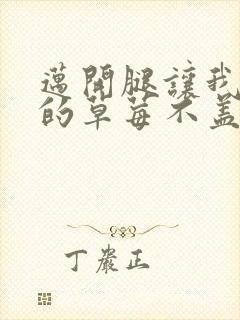 邁開腿讓我
的草莓不盖
丁嚴正